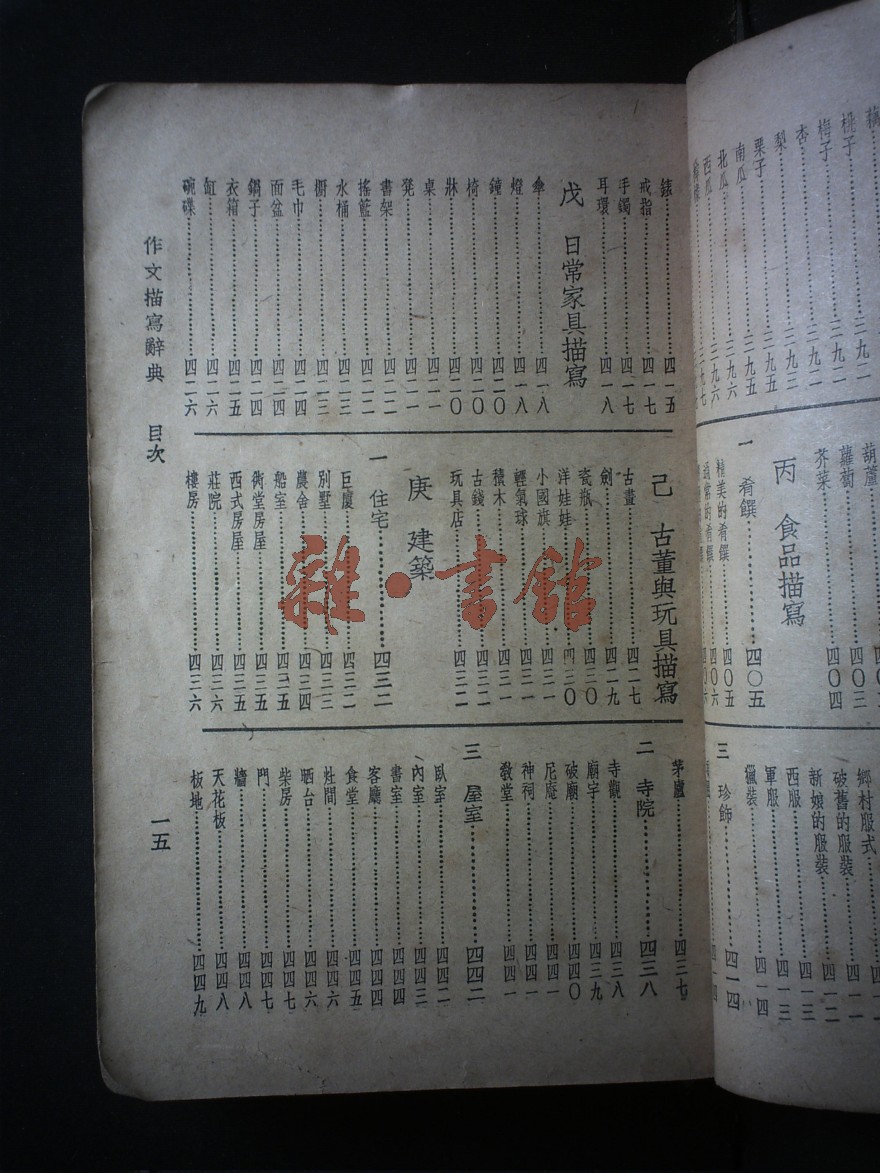 桃子……三九二
梅子
杏……三九二
梨……三九二
栗子……三九五
南瓜……三九五
北瓜……三九六
西瓜……三九六
葫蘆
蘿蔔……四〇三
芥菜……四〇四
丙 食品描寫
一 肴饌……四〇五
精美的肴饌……四〇五
通常的肴饌……四〇六
鄉村服式
破舊的服裝……四一一
新娘的服裝……四一二
西服……四一三
軍服……四一三
獵裝……四一四
三 珍飾……四一四
錶……四一五
戒指……四一七
手鐲……四一七
耳環……四一八
戊 日常家具描寫
傘……四一八
燈……四一八
鐘……四二〇
椅……四二〇
牀……四二〇
桌……四二一
凳……四二一
書架……四二二
搖籃……四二二
水桶……四二三
櫥……四二三
毛巾……四二四
面盆……四二四
鍋子……四二四
衣箱……四二五
缸……四二六
碗碟……四二六
己 古董與玩具描寫
古畫……四二七
劍……四二九
瓷瓶……四三〇
洋娃娃……四三〇
小國旗……四三一
輕氣球……四三一
積木……四三一
古錢……四三二
玩具店……四三二
庚 建築
一 住宅……四三二
巨廈……四三二
別墅……四三三
農舍……四三四
船室……四三五
衖堂房屋……四三五
西式房屋……四三五
莊院……四三六
樓房……四三六
茅廬……四三七
二 寺院……四三八
寺觀……四三八
廟宇……四三九
破廟……四四〇
尼庵……四四一
神祠……四四一
教堂……四四一
三 屋室……四四二
臥室……四四二
內室……四四三
書室……四四四
客廳……四四四
食堂……四四五
灶間……四四六
晒台……四四六
柴房……四四七
門……四四七
牆……四四八
天花板……四四八
板地……四四九
作文描寫辭典 目次
一五
雜·書館